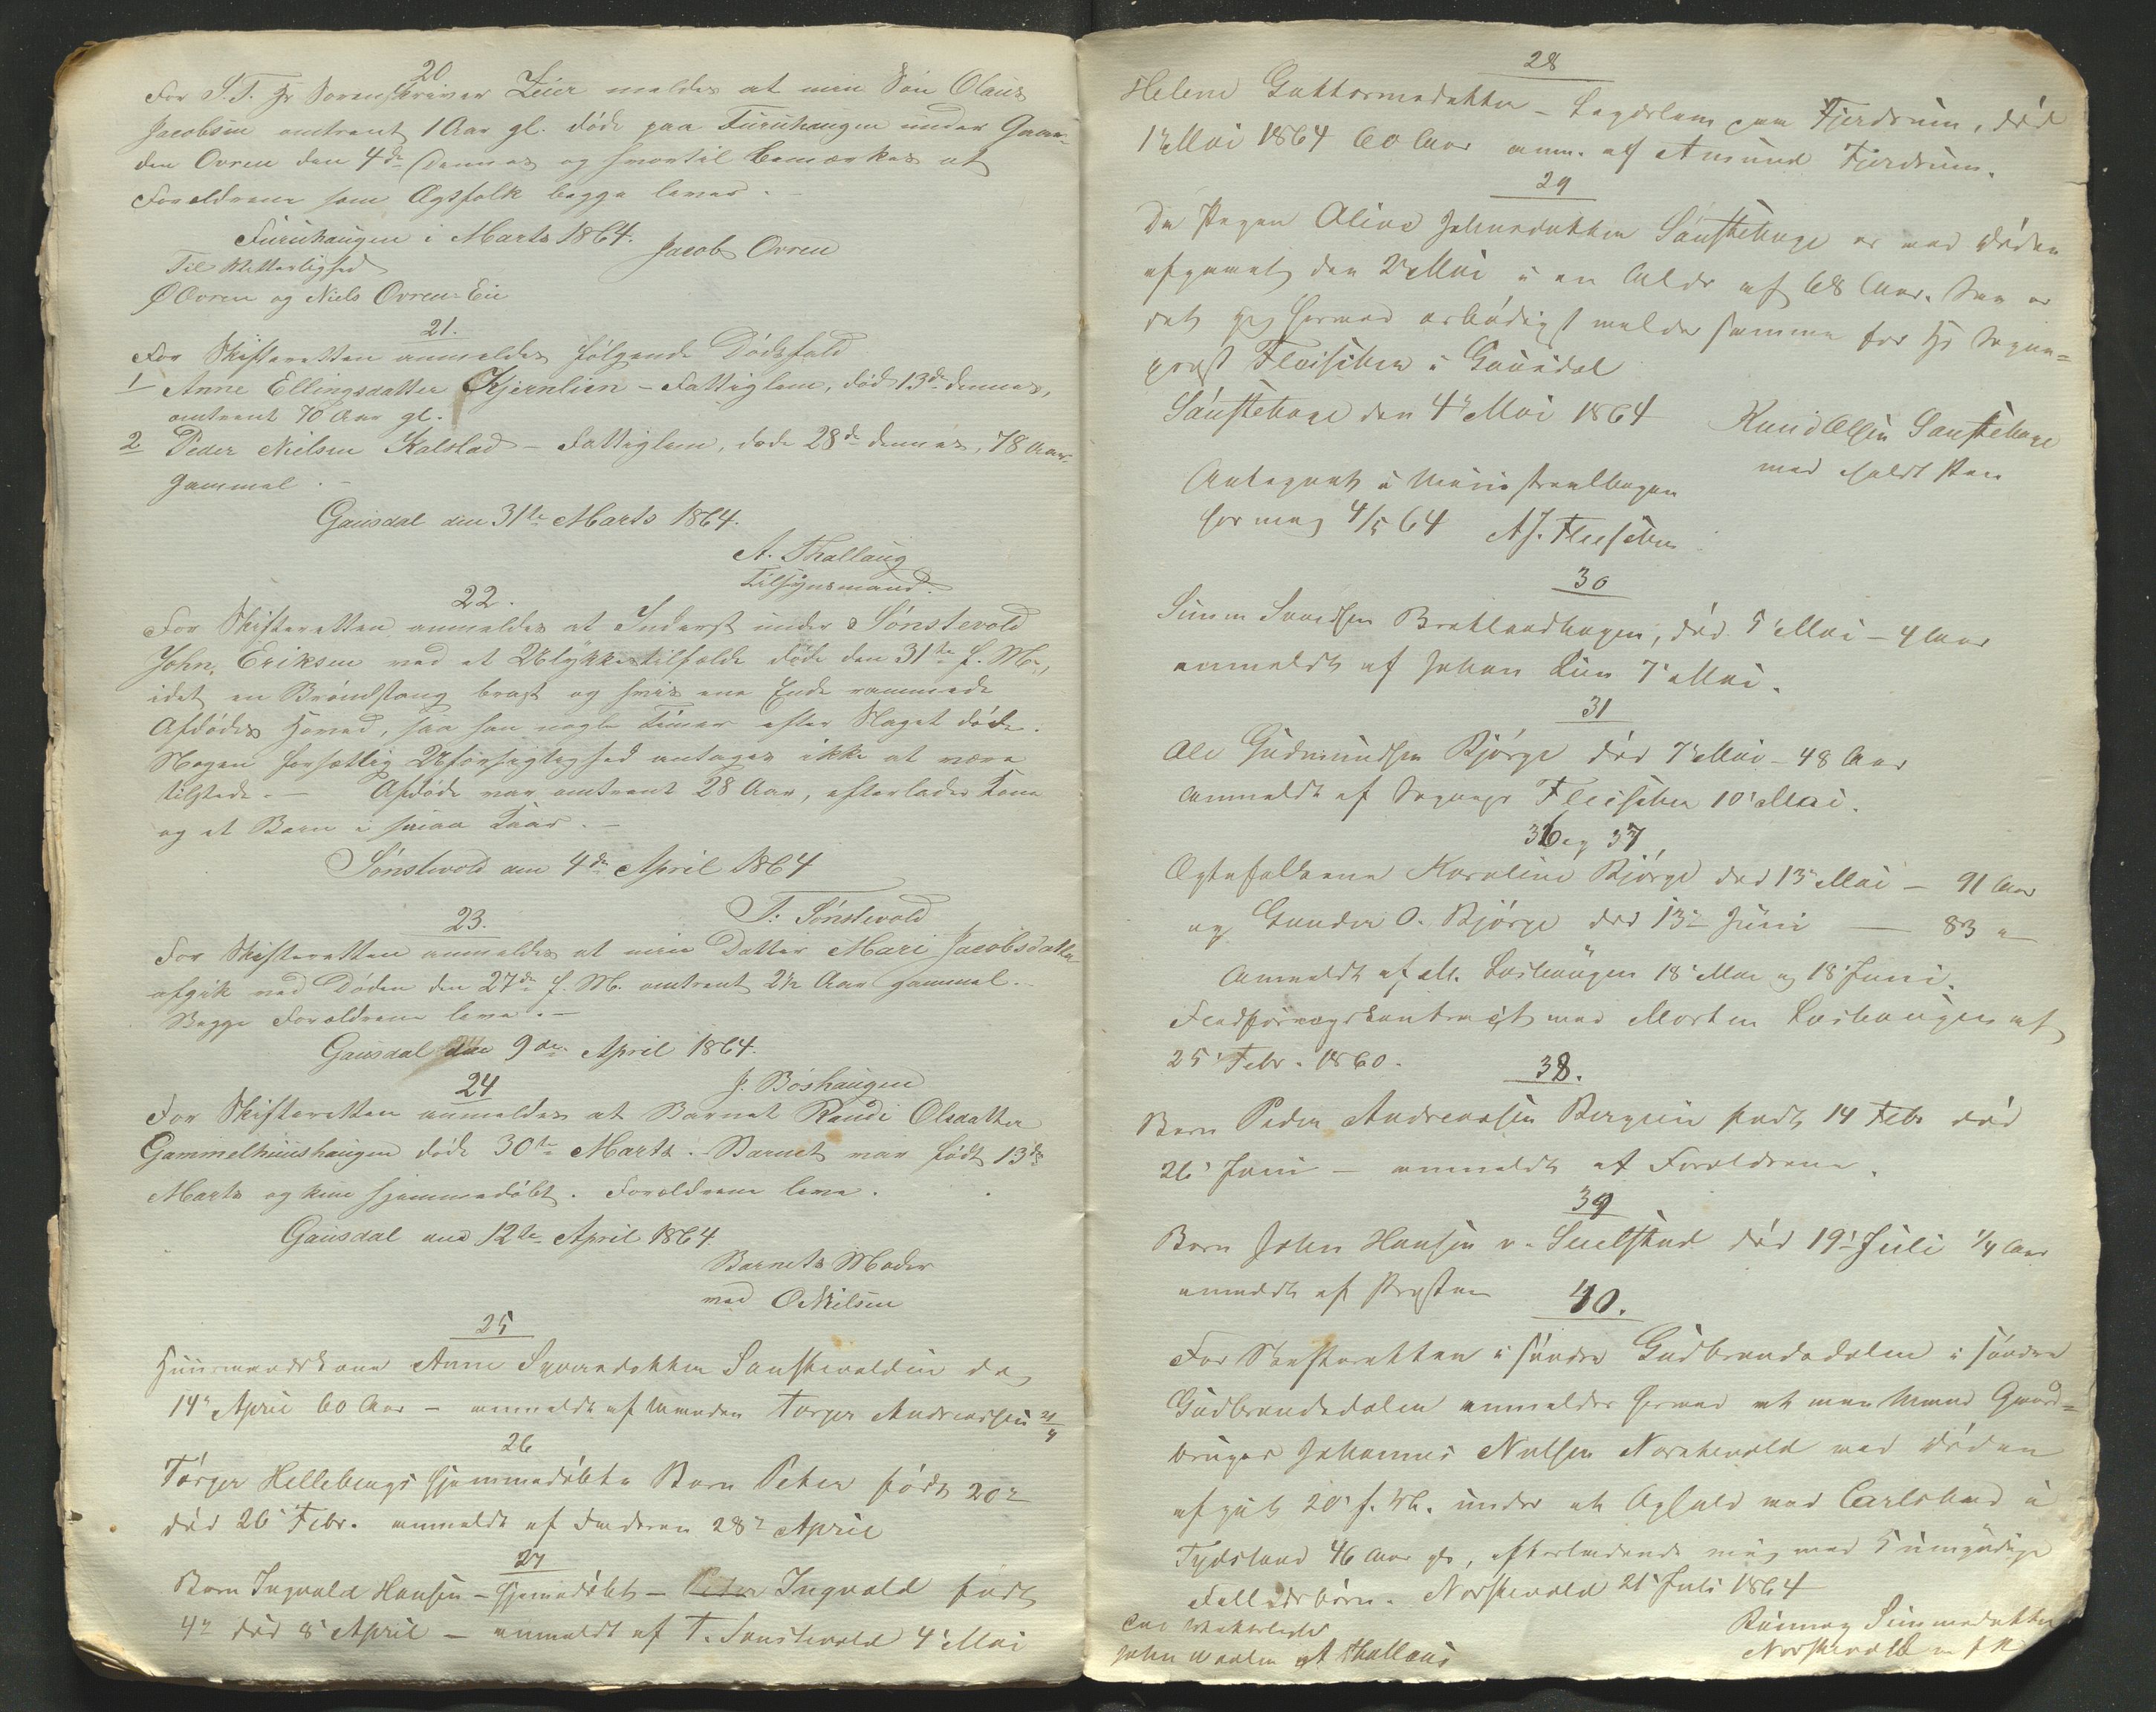 20
For S. T. Hr Sorenskriver Zeier meldes at min Søn Olaus
Jacobsen omtrent 1 Aar gl. døde paa Furuhaugen under Gaar-
den Ovren den 4de dennes og hvortil bemærkes at
Forældrene som Ægtfolk begge lever.
Furuhaugen i Marts 1864.
Jacob Ovren
Til Vitterlighed
O Ovren og Niels Ovren-Eie
21.
For Skifteretten anmeldes følgende Dødsfald
1 Anne Ellingsdatter Kjernlien - Fattiglem, død 13de dennes,
omtrent 70 Aar gl.
2 Peder Nielsen Kalstad - Fattiglem, døde 28de dennes, 78 Aar
gammel.-
Gausdal den 31te Marts 1864.
A. Thallaug
Tilsynsmand.
22.
For Skifteretten anmeldes at Inderst under Sønstevold
John Eriksen ved et Ulykkestilfælde døde den 31te f. M.,
idet en Brøndstang brast og hvis ene Ende rammede
Afdødes Hoved, saa han nogle Timer efter Slaget døde.
Nogen forsætlig Uforsigtighed antages ikke at være
tilstede.- Afdøde var omtrent 28 Aar, efterlader Kone
og et Barn i smaa Kaar.-
Sønstevold den 4de April 1864
T. Sønstevold
23.
For Skifteretten anmeldes at min Datter Mari Jacobsdatter
afgik ved Døden den 27de f. M. omtrent 2½ Aar gammel.
Begge Forældrene leve.-
Gausdal den 9de April 1864.
J. Bøshaugen
24
For Skifteretten anmeldes at Barnet Randi Olsdatter
Gammelhuushaugen døde 30te Marts. Barnet var født 13de
Marts og kun hjemmedøbt. Forældrene leve.
Gausdal den 12te April 1864
Barnets Moder
ved O Nilsen
25
Huusmandskone Anne Syverdatter Sønstevoldeie
14de April 60 Aar - anmeldt af Manden Torger Andreassen 21/4
26
Torger Hellebergs hjemmedøbte Barn Peter født 20de
død 26 Febr. anmeldt af Faderen 28de April
27
Barn Ingvald Hansen - hjemmedøbt - Peter Ingvald født
4de død 8 April - anmeldt af T. Sønstevold 4 Mai
28
Helene Guttormsdatter - Lægdslem paa Fjerdrum, død
1 Mai 1864 60 Aar anm. af Amund Fjerdrum.
29
Da Pigen Oline Johnsdatter Sønstehage er ved Døden
afgaaet den 2 Mai i en Alder af 68 Aar. Saa er
det jeg hermed ærbødigst melder samme for Hr Sogne-
præst Fleischer i Gausdal
Sønstehage den 4 Mai 1864
Knud Olsen Sønstehage
med holdt Pen
Antegnet i Ministerialbogen
for meg 4/5 64 A. F. Fleischer
30
Simen Brekkenhagen, død 5 Mai - 4 Aar
anmeldt af Johan Lien 7 Mai.
31
Ole Gudmundsen Bjørge død 7 Mai - 48 Aar
anmeldt af Sognepr Fleischer 10 Mai.
36 og 37
Ægtefolkene Karoline Bjørge død 13 Mai - 91 Aar
og Gunder O. Bjørge død 13 Juni - 83 "
Anmeldt af M. Loshaugen 18 Mai og 18 Juni.
Fledføringskontract med Morten Loshaugen af
25 Febr. 1860.
38.
Barn Peder Andreassen Bergseie født 14 Febr død
26 Juni - anmeldt af Forældrene.
39
Barn John Hansen v. Smelstad død 19 Juli ¼ Aar
anmeldt af Præsten
40.
For Skifteretten i søndre Gudbrandsdalen i søndre
Gudbrandsdalen anmeldes hermed at min Mand Gaard-
bruger Johannes Nielsen Norstevold ved Døden
afgik 20 f. M. under et Ophold ved Carlsbad i
Tydskland 46 Aar gl., efterladende mig med 5 umyndige
Fellesbørn. Norstevold 21 Juli 1864
Rønnog Simensdatter
Norstevold m. f. P.
Til Vitterlighed
John A Thallaug